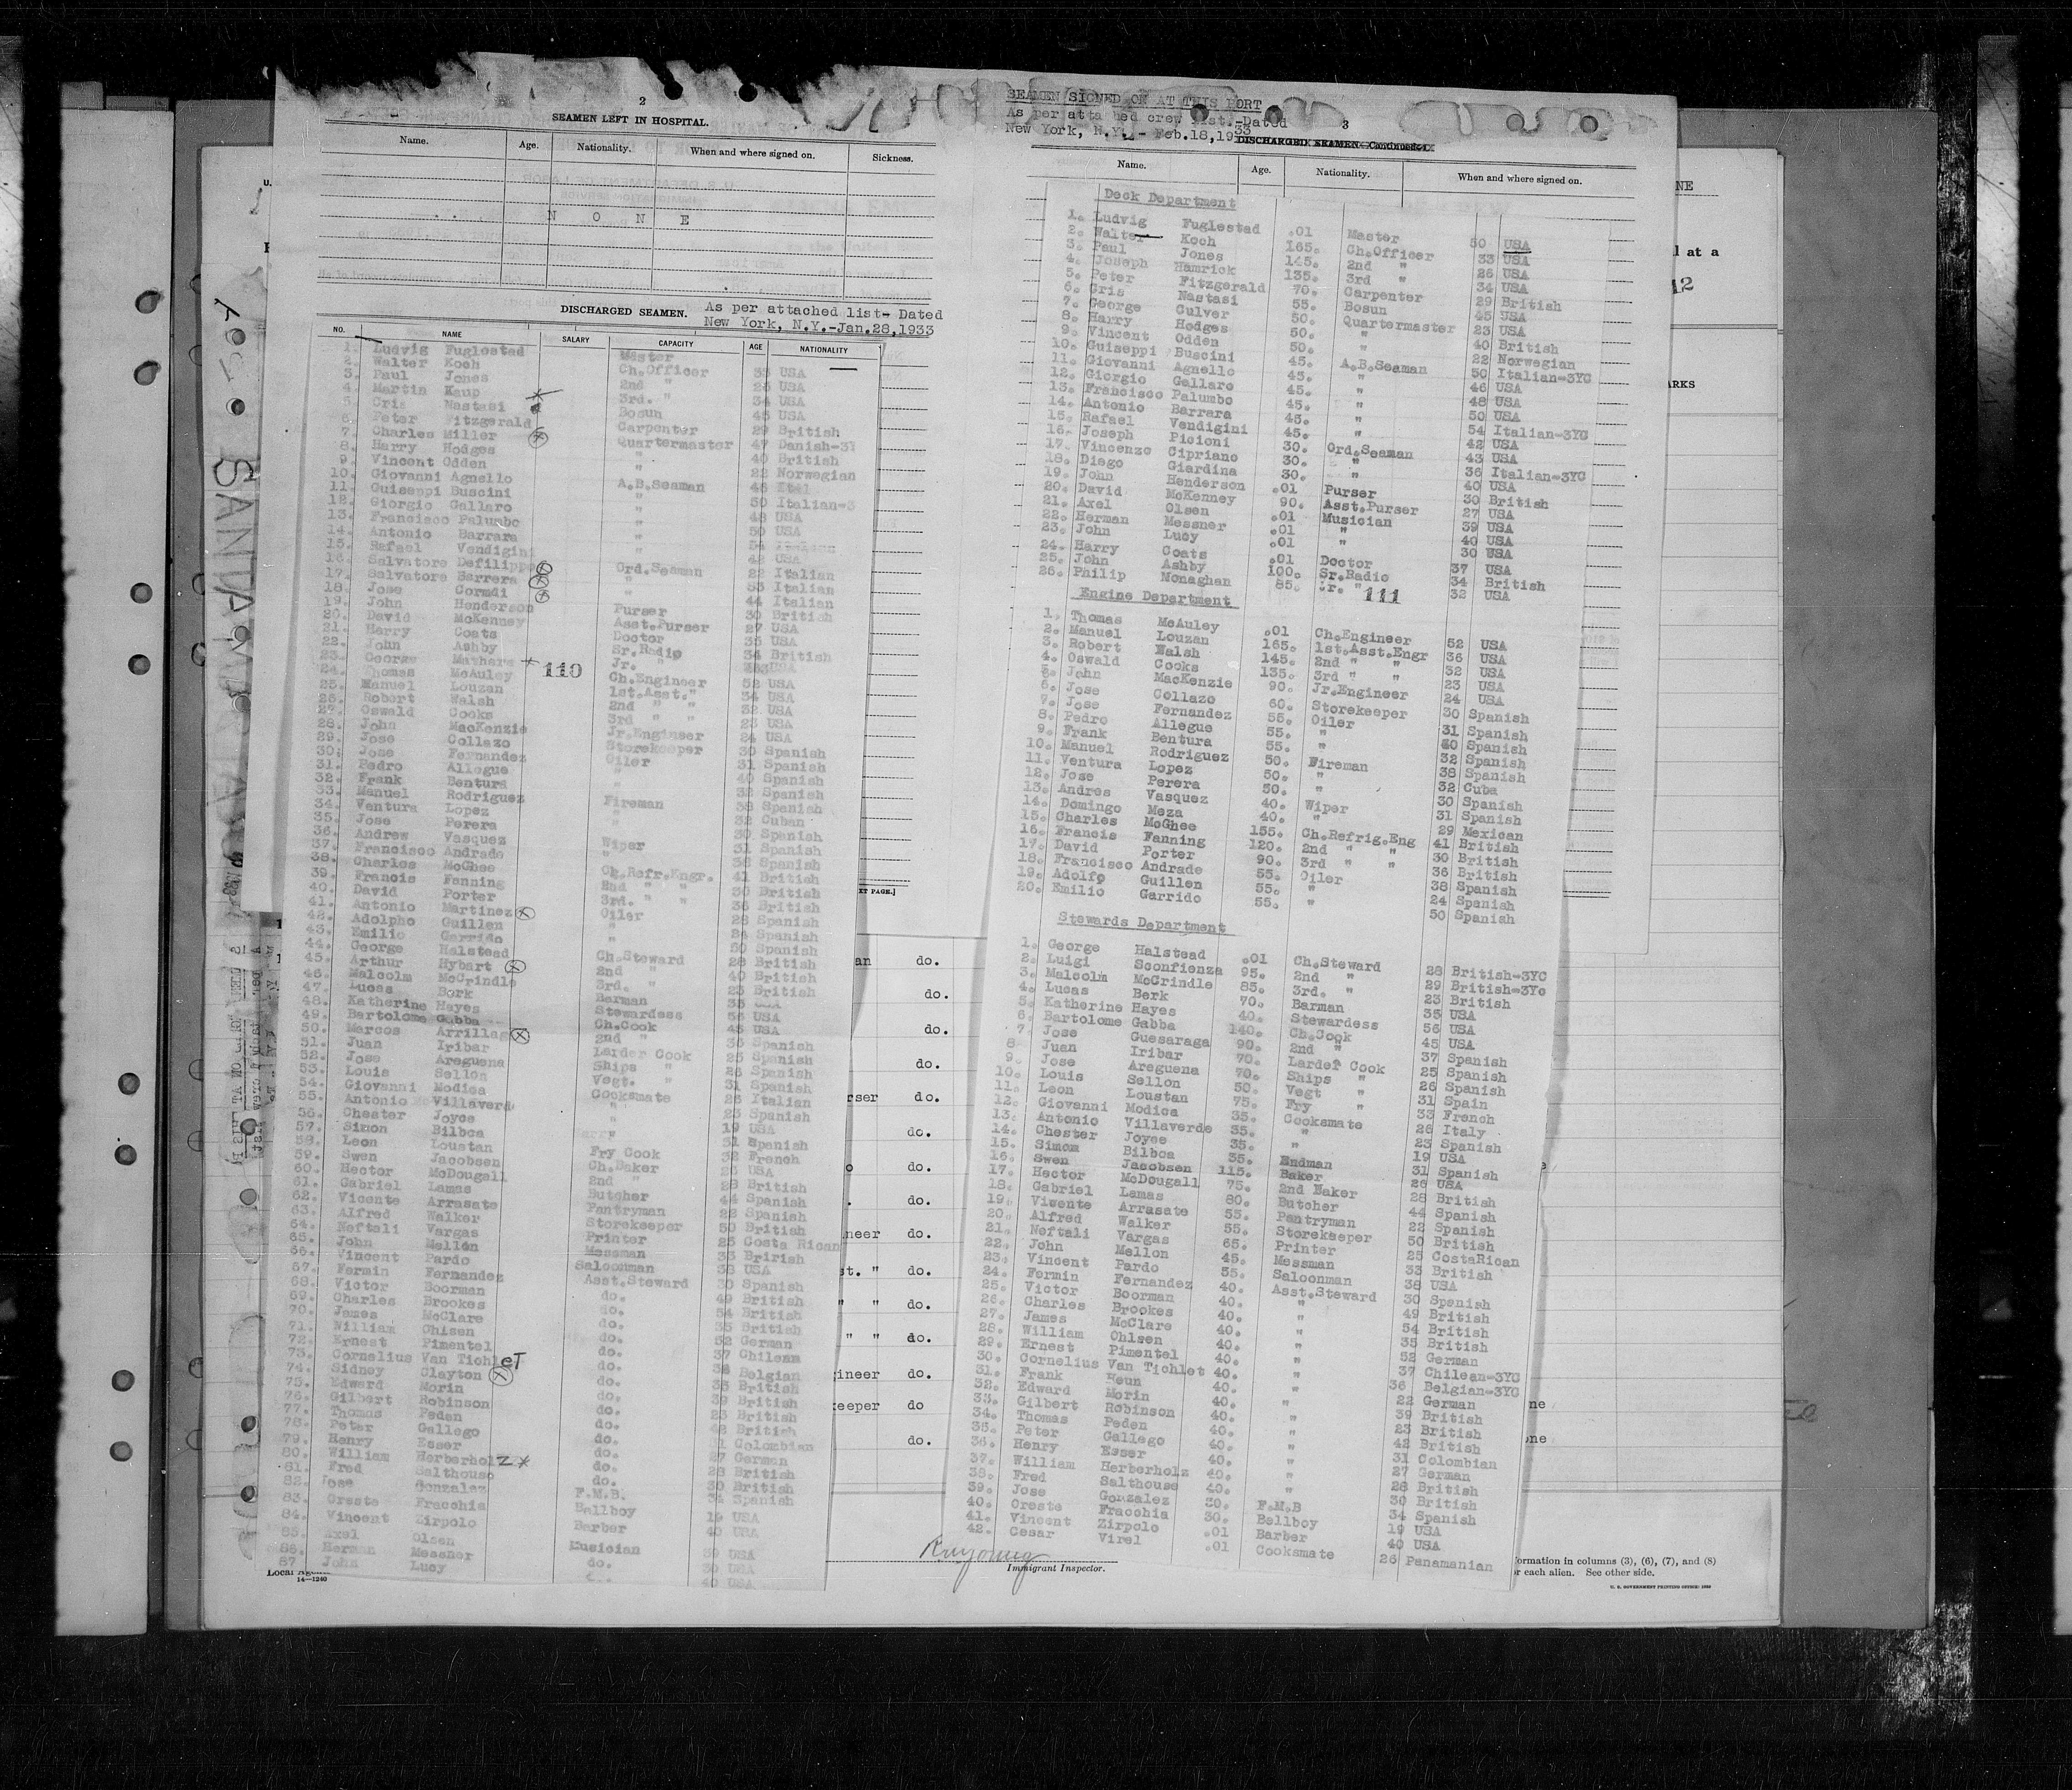 2
SEAMEN LEFT IN HOSPITAL.
Name. Age. Nationality. When and where signed on. Sickness.
N O N E
DISCHARGED SEAMEN. As per attached list- Dated
New York, N.Y.-Jan.28,1933
NO. NAME SALARY CAPACITY AGE NATIONALITY
1. Ludvig Fuglestad Master
2. Walter Koch Ch.Officer 33 USA
3. Paul Jones 2nd " 25 USA
4. Martin Kaup 3rd. " 34 USA
5. Cris Nastasi Bosun 45 USA
6. Peter Fitzgerald Carpenter 29 British
7. Charles Miller Quartermaster 47 Danish-3Y
8. Harry Hodges " 40 British
9. Vincent Odden " 22 Norwegian
10. Giovanni Agnello A.B.Seaman 46
11. Guiseppi Buscini " 50 Italian-3
12. Giorgio Gallaro " 48 USA
13. Francisco Palumbo " 50 USA
14. Antonio Barrara " 54
15. Rafael Vendigini " 42 USA
16. Salvatore Defilippo Ord.Seaman 22 Italian
17. Salvatore Barrera " 53 Italian
18. Jose Cormdi " 44 Italian
19. John Henderson Purser 30 British
20. David McKenney Asst.Purser 27 USA
21. Harry Coats Doctor 35 USA
22. John Ashby Sr.Radio 34 British
23. George Jr. " USA
110
24. Thomas McAuley Ch.Engineer 52 USA
25. Manuel Louzan 1st.Asst." 34 USA
26. Robert Walsh 2nd " " 32 USA
27. Oswald Cooks 3rd " " 23 USA
28. John MacKenzie Jr.Engineer 24 USA
29. Jose Collazo Storekeeper 30 Spanish
30. Jose Fernandez Oiler 31 Spanish
31. Pedro Allegue " 40 Spanish
32. Frank Bentura " 32 Spanish
33. Manuel Rodriguez Fireman 38 Spanish
34. Ventura Lopez " 32 Cuban
35. Jose Perera " 30 Spanish
36. Andrew Vasquez Wiper 31 Spanish
37. Francisco Andrade " 38 Spanish
38. Charles McGhee Ch.Refr.Engr. 41 British
39. Francis Fanning 2nd " " 30 British
40. David Porter 3rd. " " 36 British
41. Antonio Martinez Oiler 28 Spanish
42. Adolpho Guillen " 24 Spanish
43. Emilio Garrido " 50 Spanish
44. George Halstead Ch.Steward 28 British
45. Arthur Hybart 2nd " 40 British
46. Malcolm McCrindle 3rd. " 23 British
47. Lucas Berk Barman 35
48. Katherine Hayes Stewardess 56 USA
49. Bartolome Gabba Ch.Cook 45 USA
50. Marcos Arrillag 2nd " 36 Spanish
51. Juan Iribar Larder Cook 25 Spanish
52. Jose Areguena Ships " 26 Spanish
53. Louis Sellon Vegt. " 31 Spanish
54. Giovanni Modica Cooksmate 26 Italian
55. Antonio Villaverd " 23 Spanish
56. Chester Joyce " 19 USA
57. Simon Bilboa 31 Spanish
58. Leon Loustan Fry Cook 32 French
59. Swen Jacobsen Ch.Baker 26 USA
60. Hector McDougall 2nd " 28 British
61. Gabriel Lamas Butcher 44 Spanish
62. Vicente Arrasate Pantryman 22 Spanish
63. Alfred Walker Storekeeper 50 British
64. Neftali Vargas Printer 25 Costa Rican
65. John Mellon Messman 33 Brirish
66. Vincent Pardo Saloonman 38 USA
67. Fermin Fernandez Asst.Steward 30 Spanish
68. Victor Boorman do. 49 British
69. Charles Brookes do. 54 British
70. James McClare do. 35 British
71. William Ohlsen do. 52 German
72. Ernest Pimentel do. 37 Chilean
73. Cornelius Van Tichl eT do. 36 Belgian
74. Sidney Clayton do. 35 British
75. Edward Morin do. 39 British
76. Gilbert Robinson do. 23 British
77. Thomas Peden do. 42 British
78. Peter Gallego do. 1 Colombian
79. Henry Esser do. 27 German
80. William Herberhol Z do. 28 British
81. Fred Salthouse do. 30 British
82. Jose Gonzalez F.M.B. 34 Spanish
83. Oreste Fracchia Bellboy 19 USA
84. Vincent Zirpolo Barber 40 USA
85. Axel Olsen Musician 39 USA
86. Herman Messner do. 30 USA
87 John Lucy 40 USA
SEAMEN SIGNED ON AT THIS PORT
As per attached crew list.-Dated
New York, N.Y. - Feb.18,1933
3
DISCHARGED SEAMEN-Continued.
Name. Age. Nationality. When and where signed on.
Deck Department
1. Ludvig Fuglestad .01 Master 50 USA
2. Walter Koch 165. Ch.Officer 33 USA
3. Paul Jones 145. 2nd " 26 USA
4. Joseph Hamrick 135. 3rd " 34 USA
5. Peter Fitzgerald 70. Carpenter 29 British
6. Cris Nastasi 55. Bosun 45 USA
7. George Culver 50. Quartermaster 23 USA
8. Harry Hodges 50. " 40 British
9. Vincent Odden 50. " 22 Norwegian
10. Guiseppi Buscini 45. A.B.Seaman 50 Italian-3YC
11. Giovanni Agnello 45. " 46 USA
12. Giorgio Gallaro 45. " 48 USA
13. Francisco Palumbo 45. " 50 USA
14. Antonio Barrara 45. " 54 Italian-3YC
15. Rafael Vendigini 45. " 42 USA
16. Joseph Picioni 30. Ord.Seaman 43 USA
17. Vincenzo Cipriano 30. " 36 Italian-3YC
18. Diego Giardina 30. " 40 USA
19. John Henderson .01 Purser 30 British
20. David McKenney 90. Asst.Purser 27 USA
21. Axel Olsen .01 Musician 39 USA
22. Herman Messner .01 " 40 USA
23. John Lucy .01 30 USA
24. Harry Coats .01 Doctor 37 USA
25. John Ashby 100. Sr.Radio 34 British
26. Philip Monaghan 85. Jr. " 32 USA
111
Engine Department
1. Thomas McAuley .01 Ch.Engineer 52 USA
2. Manuel Louzan 165. 1st.Asst.Engr 36 USA
3. Robert Walsh 145. 2nd " " 32 USA
4. Oswald Cooks 135. 3rd " " 23 USA
5. John MacKenzie 90. Jr.Engineer 24 USA
6. Jose Collazo 60. Storekeeper 30 Spanish
7. Jose Fernandez 55. Oiler 31 Spanish
8. Pedro Allegue 55. " 40 Spanish
9. Frank Bentura 55. " 32 Spanish
10. Manuel Rodriguez 50. Fireman 38 Spanish
11. Ventura Lopez 50. " 32 Cuba
12. Jose Perera 50. " 30 Spanish
13. Andres Vasquez 40. Wiper 31 Spanish
14. Domingo Meza 40. " 29 Mexican
15. Charles McGhee 155. Ch.Refrig.Eng 41 British
16. Francis Fanning 120. 2nd " " 30 British
17. David Porter 90. 3rd " " 36 British
18. Francisco Andrade 55. Oiler 38 Spanish
19. Adolfo Guillen 55. " 24 Spanish
20. Emilio Garrido 55. " 50 Spanish
Stewards Department
1. George Halstead .01 Ch.Steward 28 British-3YC
2. Luigi Sconfienza 95. 2nd " 29 British-3Yc
3. Malcolm McCrindle 85. 3rd. " 23 British
4. Lucas Berk 70. Barman 35 USA
5. Katherine Hayes 40. Stewardess 56 USA
6. Bartolome Gabba 140. Ch.Cook 45 USA
7. Jose Guesaraga 90. 2nd " 37 Spanish
8 Juan Iribar 70. Larder Cook 25 Spanish
9. Jose Areguena 70. Ships " 26 Spanish
10. Louis Sellon 50. Vegt " 31 Spain
11. Leon Loustan 75. Fry " 33 French
12. Giovanni Modica 35. Cooksmate 26 Italy
13. Antonio Villaverde 35. " 23 Spanish
14. Chester Joyce 35. " 19 USA
15. Simom Bilboa 35. Endman 31 Spanish
16. Swen Jacobsen 115. Baker 26 USA
17. Hector McDougall 75. 2nd Baker 28 British
18. Gabriel Lamas 80. Butcher 44 Spanish
19. Vicente Arrasate 55. Pantryman 22 Spanish
20. Alfred Walker 55. Storekeeper 50 British
21. Neftali Vargas 65. Printer 25 CostaRican
22. John Mellon 45. Messman 33 British
23. Vincent Pardo 55. Saloonman 38 USA
24. Fermin Fernandez 40. Asst.Steward 30 Spanish
25. Victor Boorman 40. " 49 British
26. Charles Brookes 40. " 54 British
27. James McClare 40. " 35 British
28. William Ohlsen 40. " 52 German
29. Ernest Pimentel 40. " 37 Chilean-3YC
30. Cornelius Van Tichlet 40. " 36 Belgian-3YC
31. Frank Heun 40. " 22 German
32. Edward Morin 40. " 39 British
33. Gilbert Robinson 40. " 23 British
34. Thomas Peden 40. " 42 British
35. Peter Gallego 40. " 31 Colombian
36. Henry Esser 40. " 27 German
37. William Herberholz 40. " 28 British
38. Fred Salthouse 40. " 30 British
39. Jose Gonzalez 30. F.M.B 34 Spanish
40. Oreste Fracchia 30. Bellboy 19 USA
41. Vincent Zirpolo .01 Barber 40 USA
42. Cesar Virel .01 Cooksmate 26 Panamanian
Immigrant Inspector.
14—1240
formation in columns (3), (6), (7), and (8)
r each alien. See other side.
U. S. GOVERNMENT PRINTING OFFICE: 1930